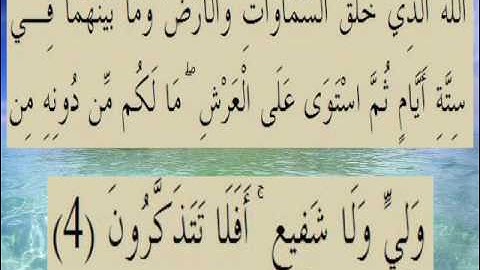 اللَّهُ الَّذِي خَلَقَ السَّمَاوَاتِ وَالْأَرْضَ وَمَا بَيْنَهُمَا فِي
سِتَّةِ أَيَّامٍ ثُمَّ اسْتَوَى عَلَى الْعَرْشِ ۖ مَا لَكُم مِّن دُونِهِ مِن
وَلِيٍّ وَلَا شَفِيعٍ ۚ أَفَلَا تَتَذَكَّرُونَ (4)